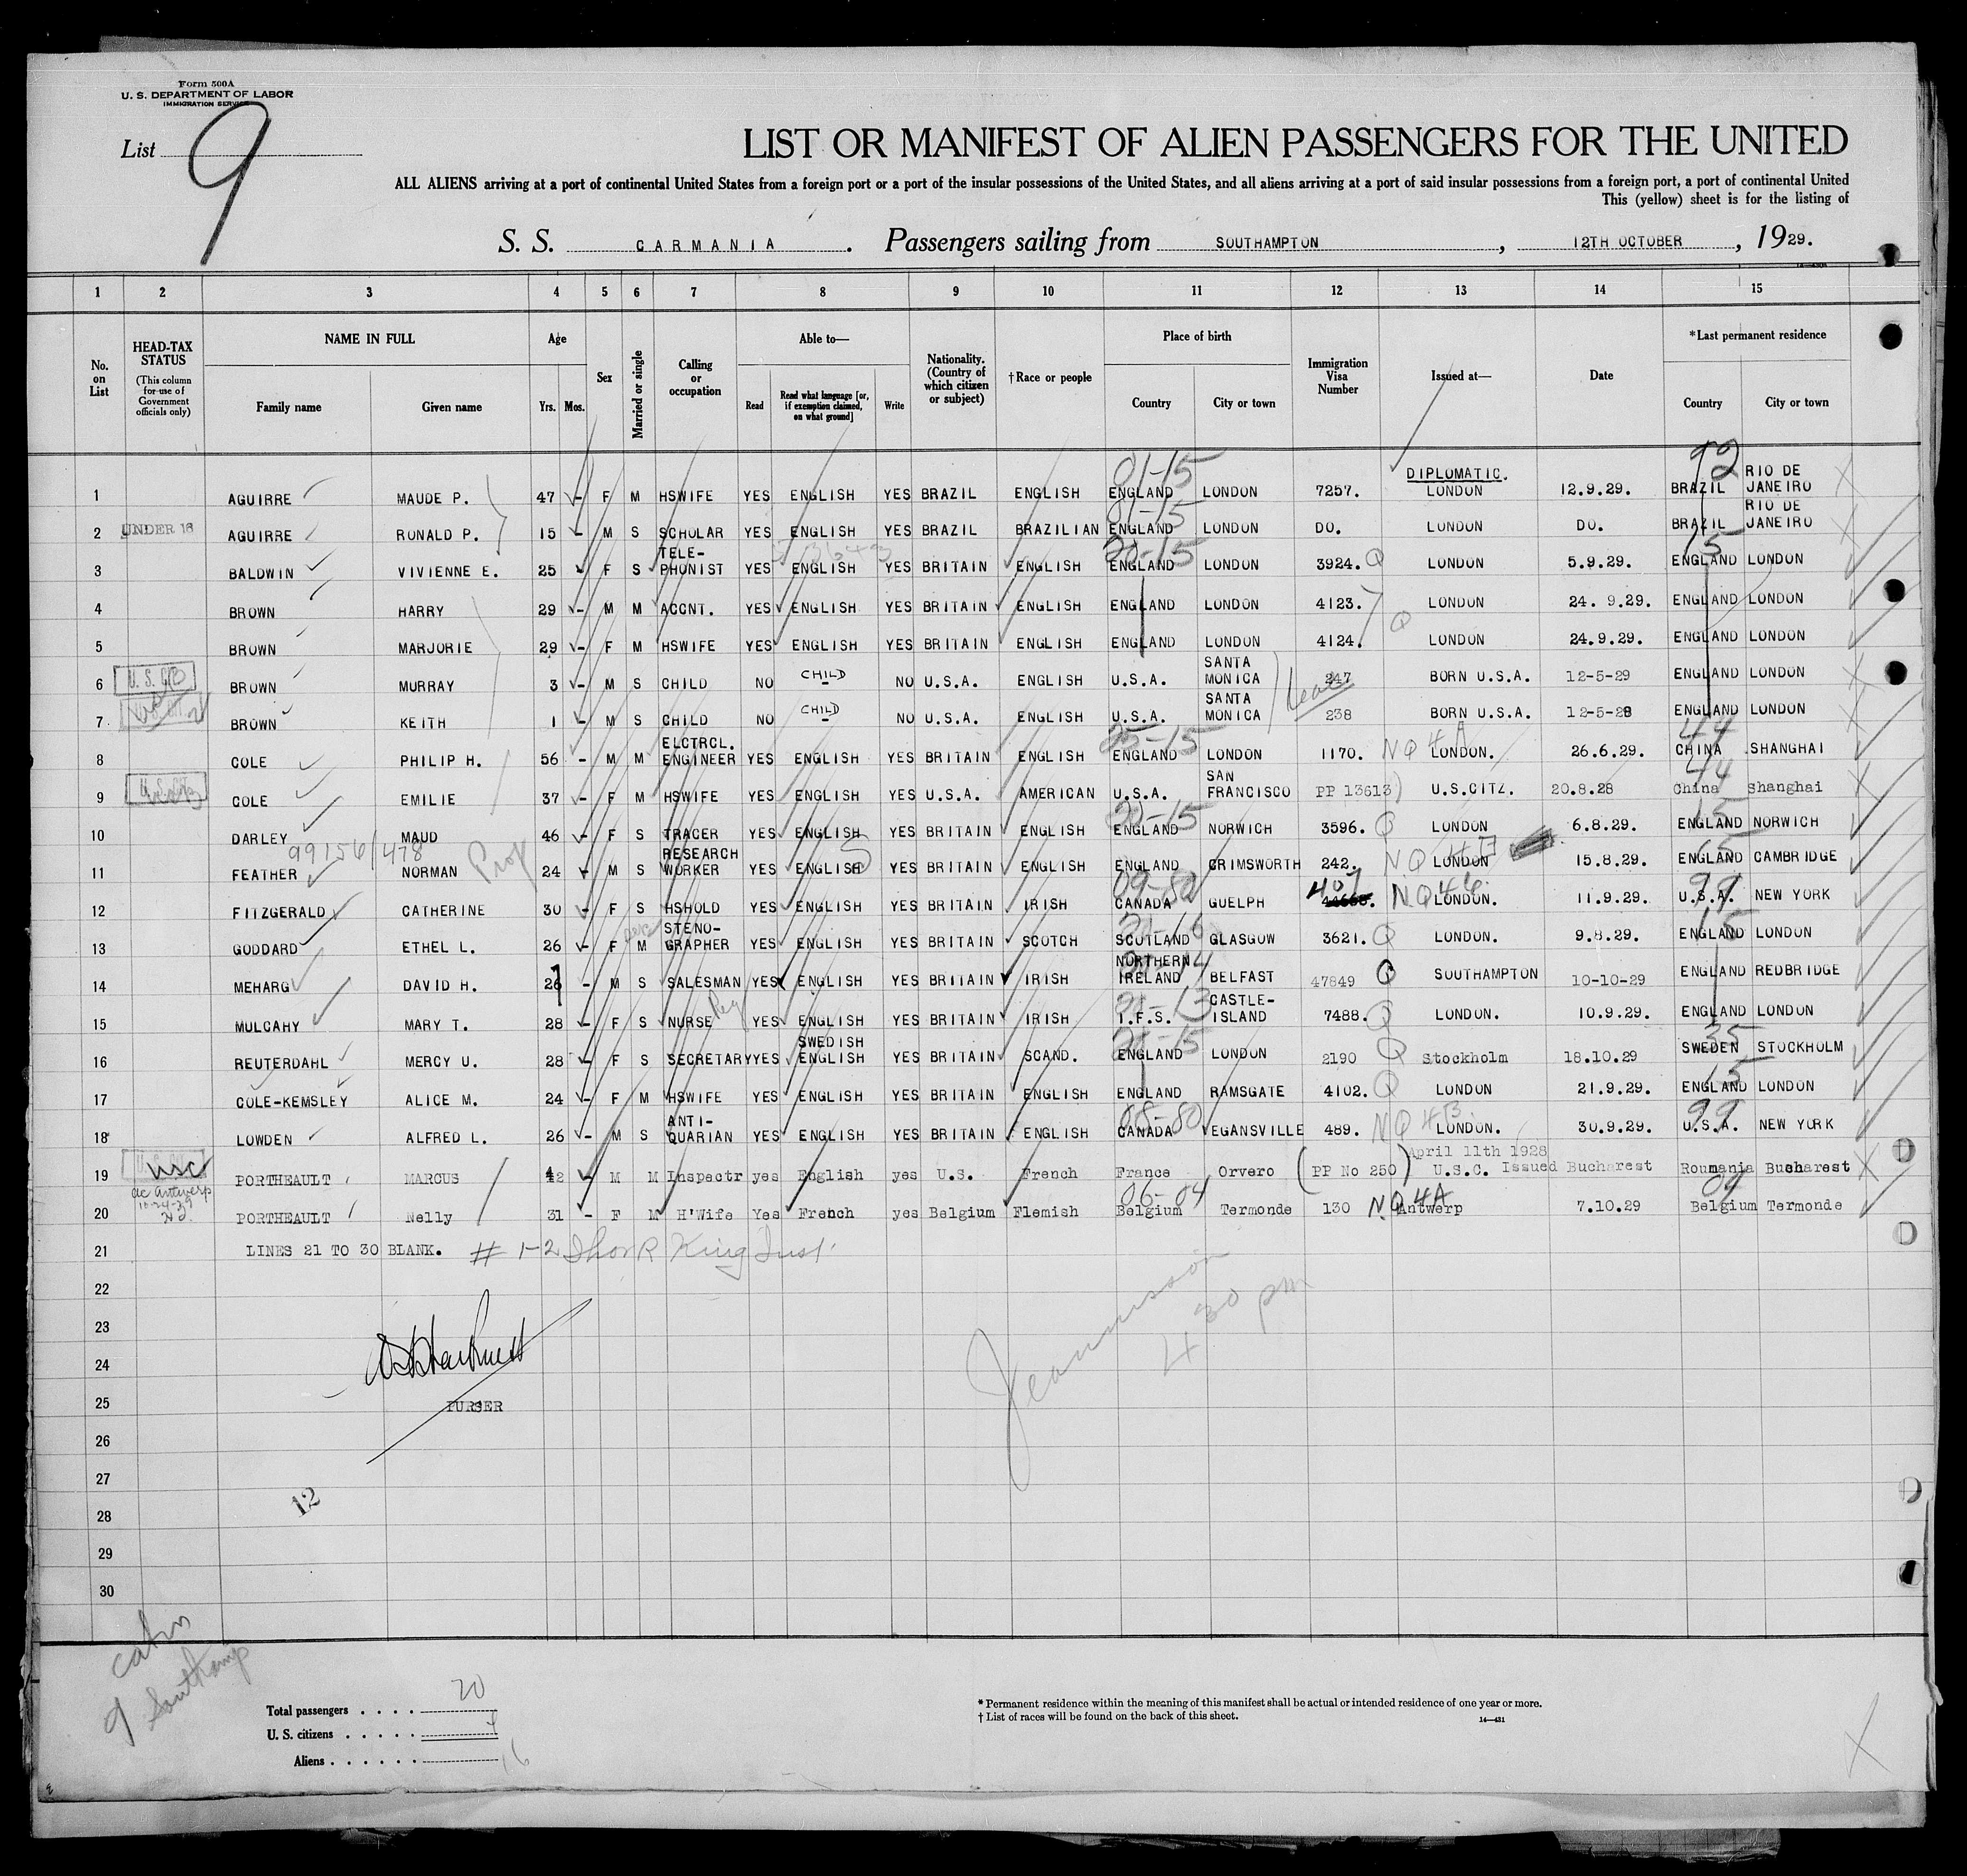 Form 500A
U. S. DEPARTMENT OF LABOR
IMMIGRATION SERVICE
List 9
LIST OR MANIFEST OF ALIEN PASSENGERS FOR THE UNITED
ALL ALIENS arriving at a port of continental United States from a foreign port or a port of the insular possessions of the United States, and all aliens arriving at a port of said insular possessions from a foreign port, a port of continental United
This (yellow) sheet is for the listing of
S. S. CARMANIA. Passengers sailing from SOUTHAMPTON, 12TH OCTOBER, 1929.
1 2 3 4 5 6 7 8 9 10 11 12 13 14 15
No. on List
HEAD-TAX STATUS (This column for use of Government officials only)
NAME IN FULL Family name Given name
Age Yrs. Mos.
Sex
Married or single
Calling or occupation
Able to— Read Read what language [or, if exemption claimed, on what ground] Write
Nationality. (Country of which citizen or subject)
†Race or people
Place of birth Country City or town
Immigration Visa Number
Issued at—
Date
*Last permanent residence Country City or town
1 AGUIRRE MAUDE P. 47 - F M HSWIFE YES ENGLISH YES BRAZIL ENGLISH 01-15 ENGLAND LONDON 7257. DIPLOMATIC. LONDON 12.9.29. 92 BRAZIL RIO DE JANEIRO
2 UNDER 16 AGUIRRE RONALD P. 15 - M S SCHOLAR YES ENGLISH YES BRAZIL BRAZILIAN 01-15 ENGLAND LONDON DO. LONDON DO. BRAZIL RIO DE JANEIRO
3 BALDWIN VIVIENNE E. 25 F S TELE-PHONIST YES ENGLISH YES BRITAIN ENGLISH 20-15 ENGLAND LONDON 3924. Q LONDON 5.9.29. 15 ENGLAND LONDON
4 BROWN HARRY 29 - M M ACCNT. YES ENGLISH YES BRITAIN ENGLISH ENGLAND LONDON 4123. LONDON 24. 9.29. ENGLAND LONDON
5 BROWN MARJORIE 29 - F M HSWIFE YES ENGLISH YES BRITAIN ENGLISH ENGLAND LONDON 4124. Q LONDON 24.9.29. ENGLAND LONDON
6 BROWN MURRAY 3 - M S CHILD NO CHILD - NO U.S.A. ENGLISH U.S.A. SANTA MONICA 247 BORN U.S.A. 12-5-29 ENGLAND LONDON
7 BROWN KEITH 1 - M S CHILD NO CHILD - NO U.S.A. ENGLISH U.S.A. SANTA MONICA 238 BORN U.S.A. 12-5-28 ENGLAND LONDON
8 COLE PHILIP H. 56 - M M ELCTRCL. ENGINEER YES ENGLISH YES BRITAIN ENGLISH 25-15 ENGLAND LONDON 1170. NQ 4A LONDON. 26.6.29. 44 CHINA SHANGHAI
9 COLE EMILIE 37 - F M HSWIFE YES ENGLISH YES U.S.A. AMERICAN U.S.A. SAN FRANCISCO PP 13613) U.S.CITZ. 20.8.28 44 China Shanghai
10 DARLEY MAUD 46 - F S TRACER YES ENGLISH YES BRITAIN ENGLISH 20-15 ENGLAND NORWICH 3596. Q LONDON 6.8.29. 15 ENGLAND NORWICH
99156/478 Prof
11 FEATHER NORMAN 24 - M S RESEARCH WORKER YES ENGLISH YES BRITAIN ENGLISH ENGLAND GRIMSWORTH 242. NQ LONDON 15.8.29. ENGLAND CAMBRIDGE
12 FITZGERALD CATHERINE 30 - F S HSHOLD YES ENGLISH YES BRITAIN IRISH 09-80 CANADA GUELPH 407 NQ LONDON. 11.9.29. 99 U.S.A. NEW YORK
13 GODDARD ETHEL L. 26 - F M STENO-GRAPHER YES ENGLISH YES BRITAIN SCOTCH SCOTLAND GLASGOW 3621. Q LONDON. 9.8.29. 15 ENGLAND LONDON
14 MEHARG DAVID H. 26 - M S SALESMAN YES ENGLISH YES BRITAIN IRISH NORTHERN IRELAND BELFAST 47849 Q SOUTHAMPTON 10-10-29 ENGLAND REDBRIDGE
15 MULCAHY MARY T. 28 - F S NURSE YES ENGLISH YES BRITAIN IRISH I.F.S. CASTLE-ISLAND 7488. Q LONDON. 10.9.29. ENGLAND LONDON
16 REUTERDAHL MERCY U. 28 - F S SECRETARY YES SWEDISH ENGLISH YES BRITAIN SCAND. ENGLAND LONDON 2190 Q Stockholm 18.10.29 35 SWEDEN STOCKHOLM
17 COLE-KEMSLEY ALICE M. 24 - F M HSWIFE YES ENGLISH YES BRITAIN ENGLISH ENGLAND RAMSGATE 4102. Q LONDON 21.9.29. 15 ENGLAND LONDON
18 LOWDEN ALFRED L. 26 - M S ANTI-QUARIAN YES ENGLISH YES BRITAIN ENGLISH 08-80 CANADA EGANSVILLE 489. NQ 4B LONDON. 30.9.29. 99 U.S.A. NEW YORK
19 USC PORTHEAULT MARCUS 42 M M Inspectr yes English yes U.S. French France Orvero (PP No 250) April 11th 1928 U.S.C. Issued Bucharest Roumania Bucharest
20 PORTHEAULT Nelly 31 - F M H'Wife Yes French yes Belgium Flemish 06-04 Belgium Termonde 130 NQ 4A Antwerp 7.10.29 09 Belgium Termonde
21 LINES 21 TO 30 BLANK. # 1-2
22
23
24
25 PURSER
26
27
28
29
30
4 30 pm
12
9 Southamp
Total passengers 20
U. S. citizens 4
Aliens 16
* Permanent residence within the meaning of this manifest shall be actual or intended residence of one year or more.
† List of races will be found on the back of this sheet.
14—431